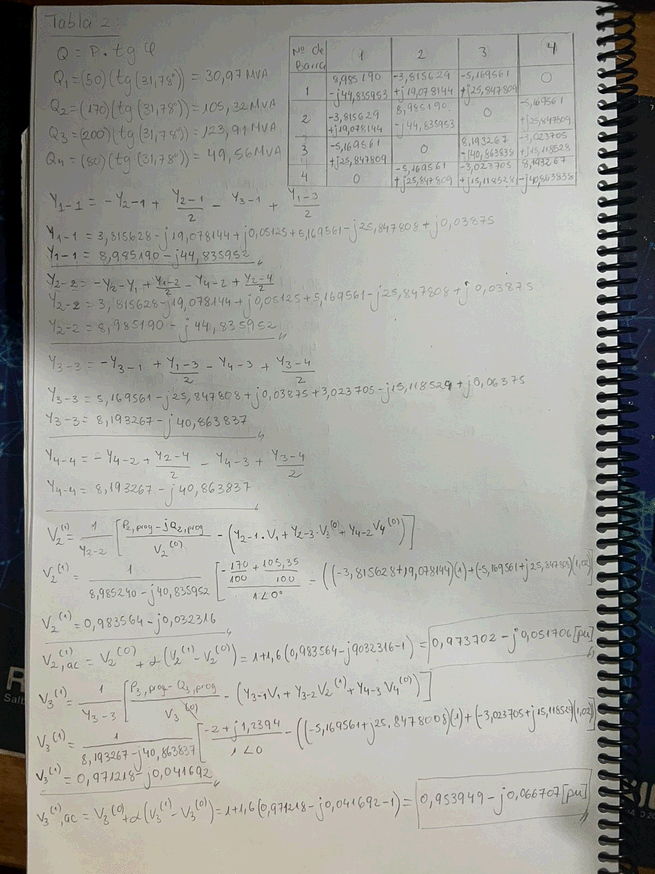 Tabla 2
Q = P · tg φ
Q1 = (50)(tg(31,78°)) = 30,97 MVA
Q2 = (170)(tg(31,78°)) = 105,32 MVA
Q3 = (200)(tg(31,78°)) = 123,91 MVA
Q4 = (80)(tg(31,78°)) = 49,56 MVA
Nº de Barra | 1 | 2 | 3 | 4
1 | 8,985190 -j44,835953 | -3,815629 +j19,078144 | -5,169561 +j25,847809 | 0
2 | -3,815629 +j19,078144 | 8,985190 -j44,835953 | 0 | -5,169561 +j25,847809
3 | -5,169561 +j25,847809 | 0 | 8,193267 -j40,863838 | -3,023705 +j15,118528
4 | 0 | -5,169561 +j25,847809 | -3,023705 +j15,118528 | 8,193267 -j40,863838
Y1-1 = -Y2-1 + Y2-1/2 - Y3-1 + Y1-3/2
Y1-1 = 3,815628 - j19,078144 + j0,05125 + 5,169561 - j25,847808 + j0,03875
Y1-1 = 8,985190 - j44,835952
Y2-2 = -Y2-Y1 + Y1-2/2 - Y4-2 + Y2-4/2
Y2-2 = 3,815628 - j19,078144 + j0,05125 + 5,169561 - j25,847808 + j0,03875
Y2-2 = 8,985190 - j44,835952
Y3-3 = -Y3-1 + Y1-3/2 - Y4-3 + Y3-4/2
Y3-3 = 5,169561 - j25,847808 + j0,03875 + 3,023705 - j15,118529 + j0,06375
Y3-3 = 8,193267 - j40,863837
Y4-4 = -Y4-2 + Y2-4/2 - Y4-3 + Y3-4/2
Y4-4 = 8,193267 - j40,863837
V2(1) = 1/Y2-2 [P2,prog - jQ2,prog/V2(0) - (Y2-1·V1 + Y2-3·V3(0) + Y4-2 V4(0))]
V2(1) = 1/8,985240 - j40,835952 [-170/100 + 105,35/100 / 1<0° - ((-3,815628+19,078144)(1) + (-5,169561+j25,847809)(1,02)]
V2(1) = 0,983564 - j0,032316
V2,ac(1) = V2(0) + α(V2(1) - V2(0)) = 1+1,6(0,983564 - j0,032316 - 1) = 0,973702 - j0,051706 [pu]
V3(1) = 1/Y3-3 [P3,prog - Q3,prog/V3(0) - (Y3-1V1 + Y3-2V2(1) + Y4-3V4(0))]
V3(1) = 1/8,193267 - j40,863837 [-2+j1,2394/1<0 - ((-5,169561+j25.8478008)(1) + (-3,023705+j15,118528)(1,02)]
V3(1) = 0,971218 - j0,041692
V3(1),ac = V3(0) + α(V3(1) - V3(0)) = 1+1,6(0,971218 - j0,041692 - 1) = 0,953949 - j0,066707 [pu]